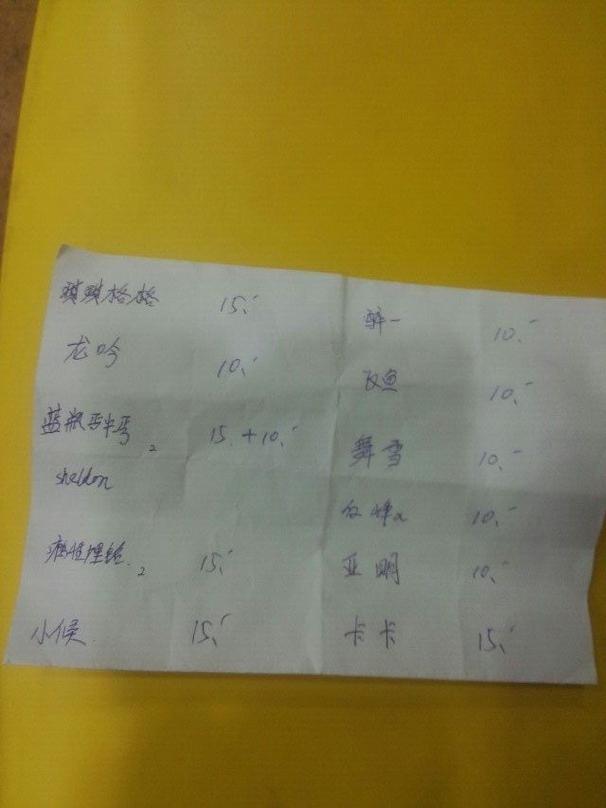 琪琪格格 15,-
龙吟 10,-
蓝瓶 2 15 + 10,-
sheldon
2 15,-
小候 15,-
醉一 10,-
飞鱼 10,-
舞雪 10,-
10,-
亚明 10,-
卡卡 15,-